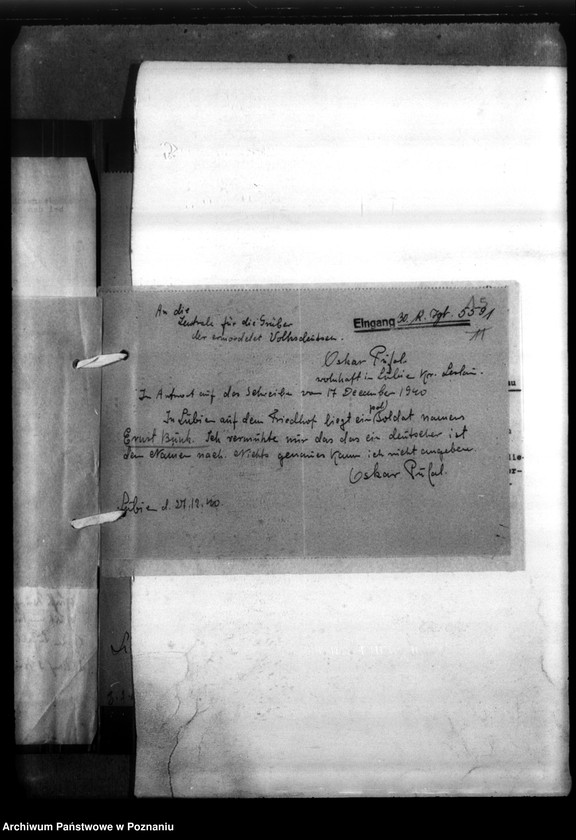 An die
Zentrale für die Gräber
der ermordeten Volksdeutschen.
Eingang 30. 12. Igt. 5591
Oskar Püfal
wohnhaft in Lübien Kr. Leslau.
In Antwort auf das Schreibe vom 17 December 1940
pol)
In Lübien auf dem Friedhof liegt ein Soldat namens
Ernst Bünk. Ich vermuhte nur das das ein deutscher ist
dem Namen nach. Nichts genaues kann ich nicht angeben
Oskar Püfal.
Lübien d. 27.12.40.
Archiwum Państwowe w Poznaniu